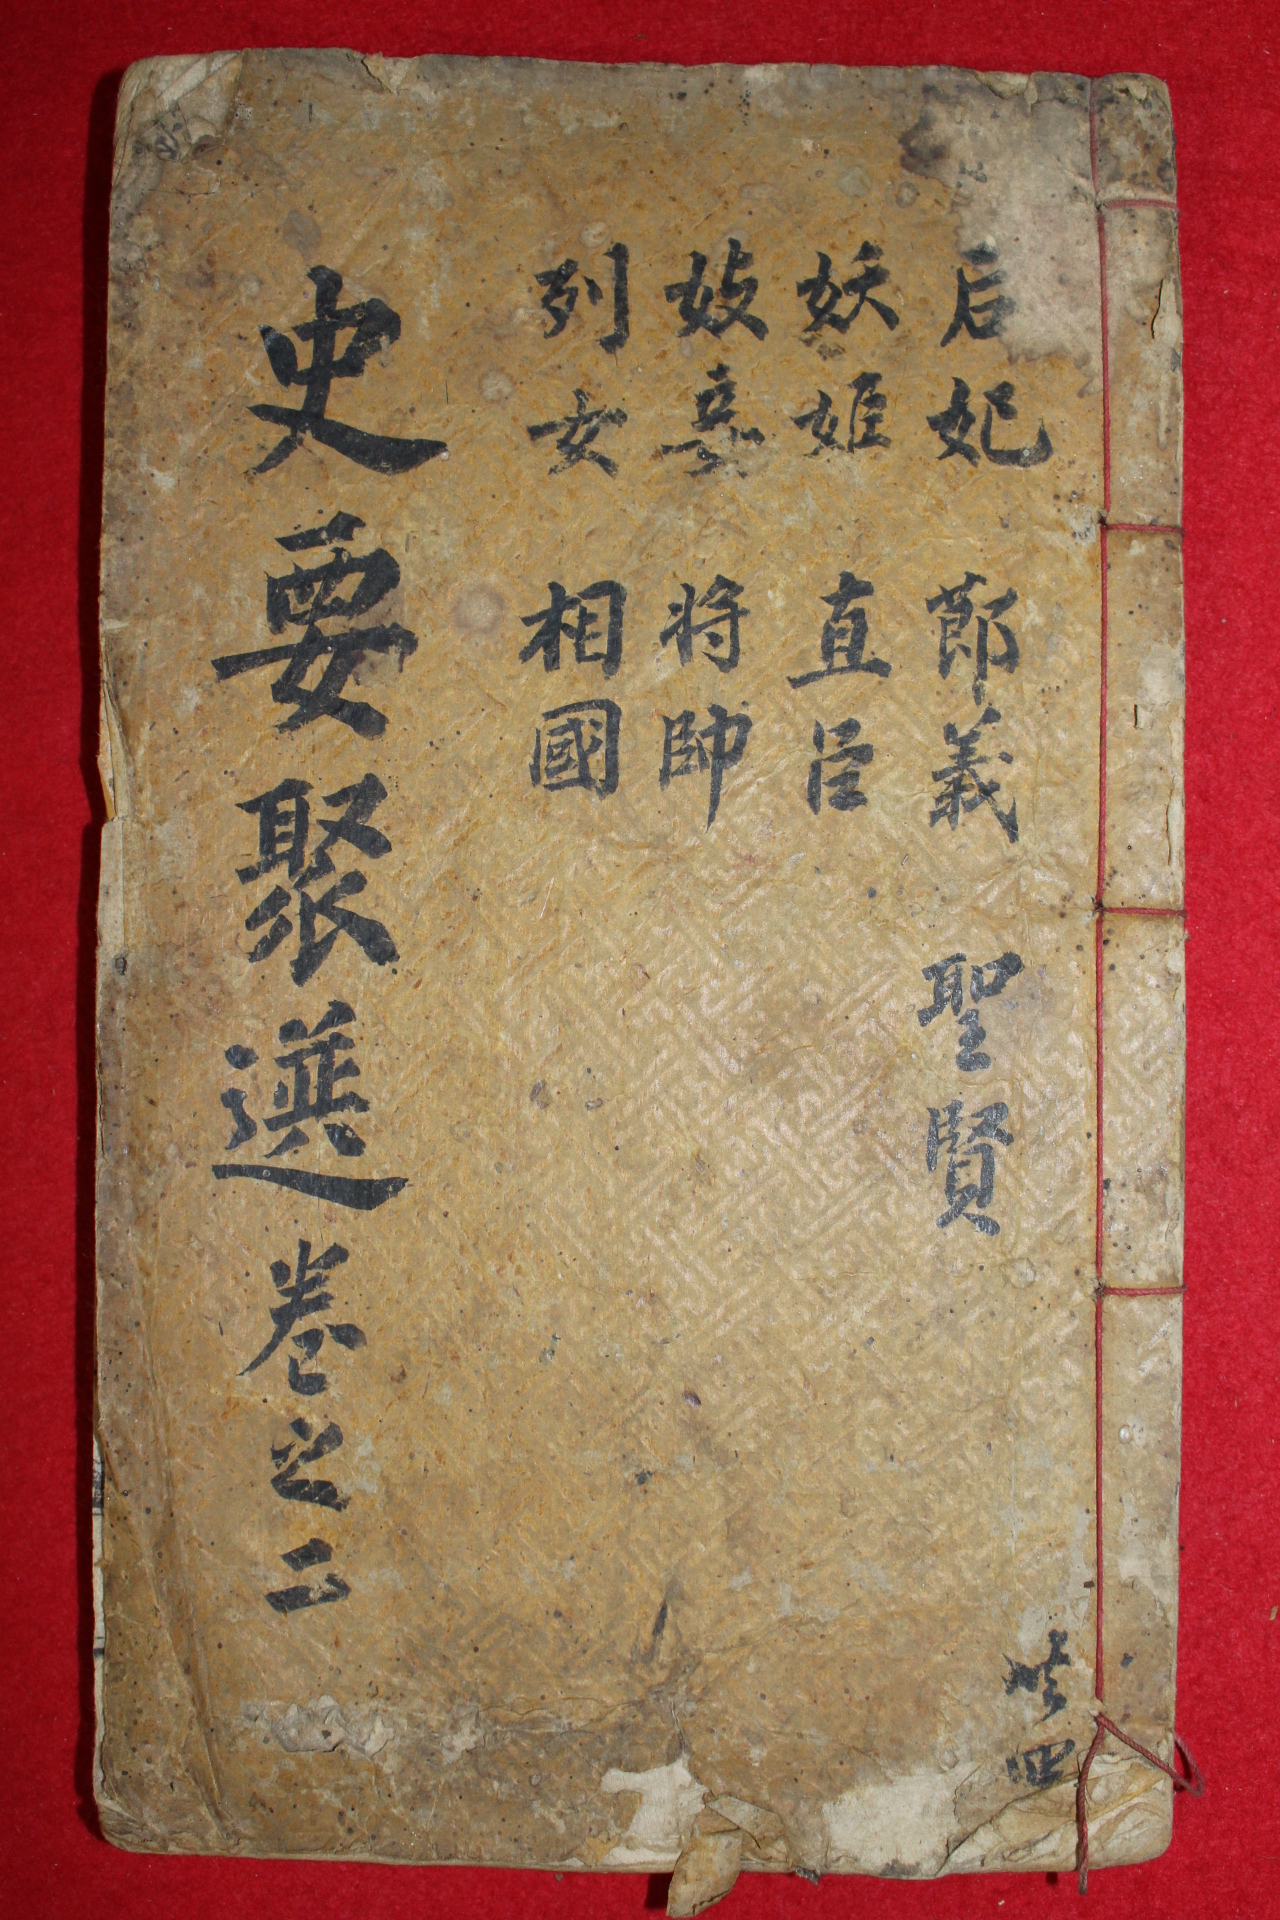 后妃 莭義 聖賢
妖姬 直臣
妓妾 将帥
列女 相國
史要聚選卷之二
共四